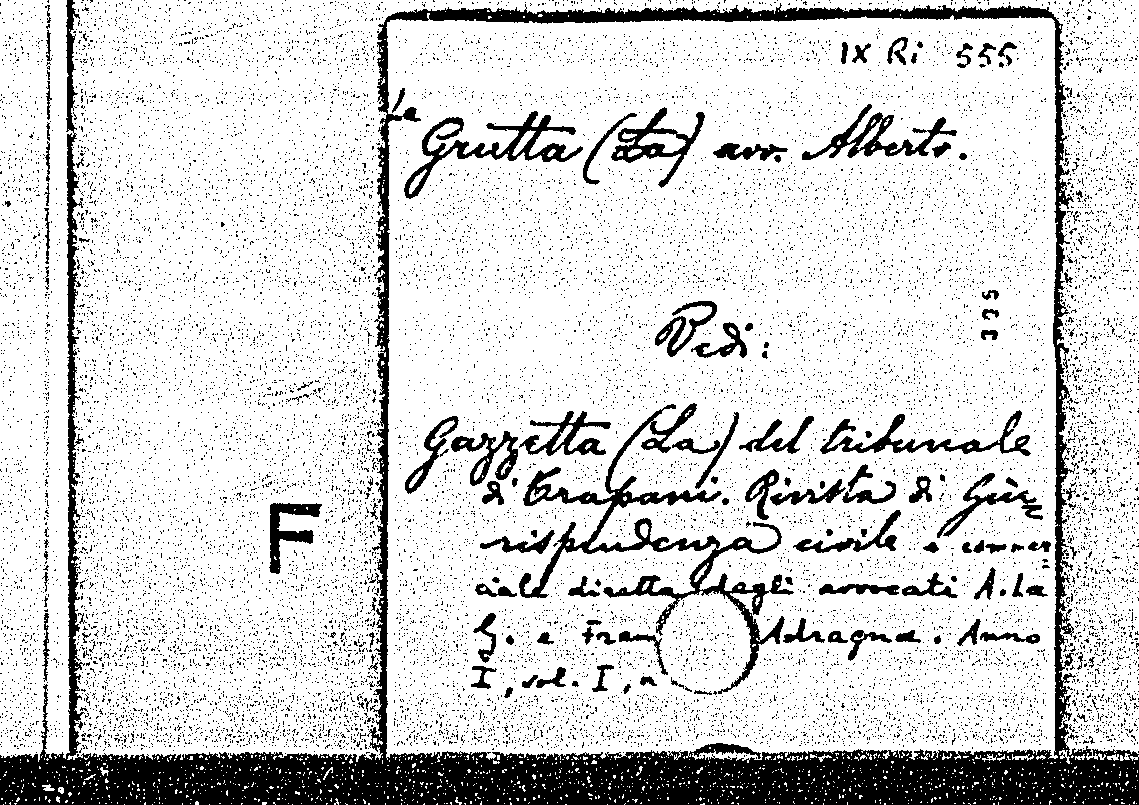 IX Ri 555
La
Grutta (La) avv. Alberto.
335
Vedi:
Gazzetta (La) del tribunale
di Trapani. Rivista di Giu=
risprudenza civile e commer=
ciale diretta dagli avvocati A. La
G. e Fran Adragna. Anno
I, vol. I, n.
F